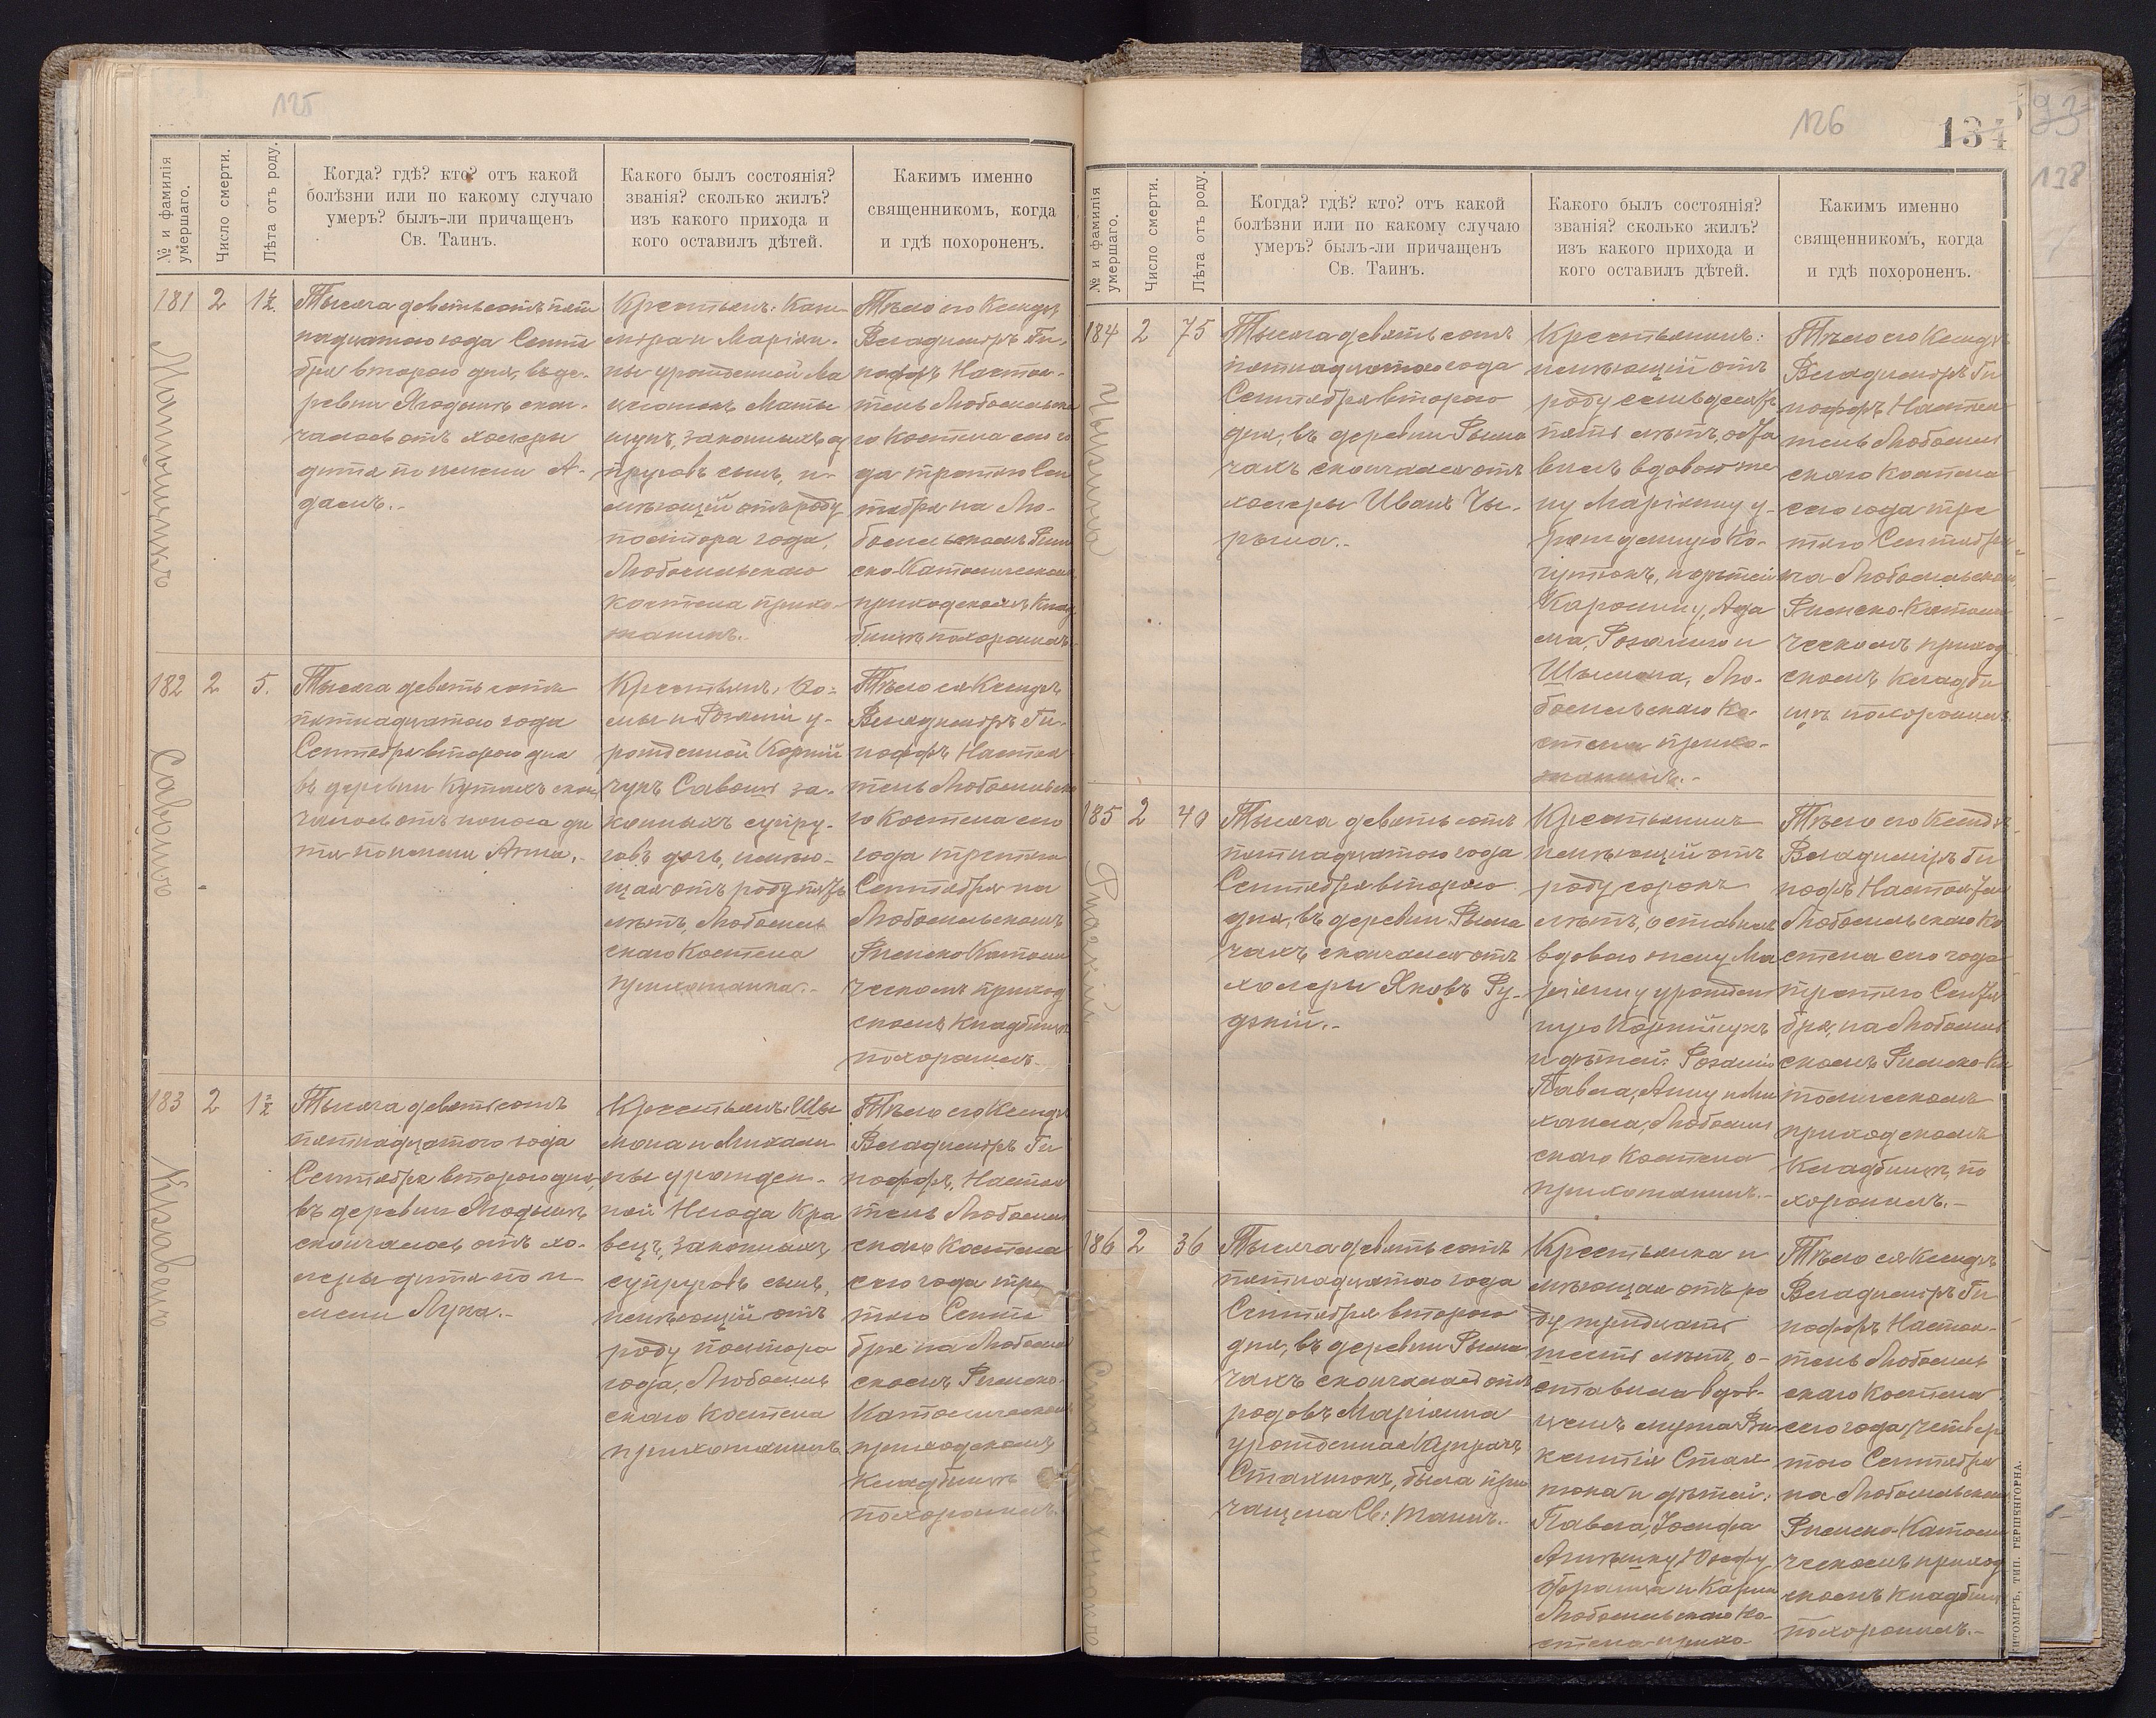 125
№ и фамилія умершаго.
Число смерти.
Лѣта отъ роду.
Когда? гдѣ? кто? отъ какой
болѣзни или по какому случаю
умеръ? былъ-ли причащенъ
Св. Таинъ.
Какого былъ состоянія?
званія? сколько жилъ?
изъ какого прихода и
кого оставилъ дѣтей.
Какимъ именно
священникомъ, когда
и гдѣ похороненъ.
181
2
1½.
Тысяча девятьсотъ пят
надцатого года Сентя
бря второго дня, въ де-
ревни Ягодинъ скон-
чалось отъ холеры
дитя по имени А-
дамъ.-
Крестьянъ: Кази-
мира и Маріян-
ны урожденной
законныхъ су
пруговъ сынъ, и-
мѣющій отъ роду
полтора года,
Любомльскаго
костела прихо-
жанинъ.-
Тѣло его Ксендзъ
Владиміръ Ги-
поффъ Настоя-
тель Любомльска
го Костела сего го
да третяго Сен
тября на Лю-
бомльскомъ Рим
ско-Католическомъ
приходскомъ Клад
бищѣ похоронилъ.
182
2
5.
Савошъ
Тысяча девятьсотъ
пятнадцатого года
Сентября второго дня
въ деревни Кутахъ скон
чалось отъ поноса ди
тя по имени Анна.-
рожденной Корній
чукъ Савошъ за-
конныхъ супру-
говъ дочь, имѣю-
щая отъ роду пять
лѣтъ, Любомль
скаго Костела
прихожанка.-
Тѣло ея Ксендзъ
Владиміръ Ги-
поффъ Настоя
тель Любомльска
го Костела сего
года третяго
Сентября на
Любомльскомъ
Римско Католи
ческомъ приход
скомъ Кладбищѣ
похоронилъ.-
183
2
1½
Кравецъ
Тысяча девятьсотъ
пятнадцатого года
Сентября второго дня,
въ деревни Ягодинъ
скончалось отъ хо-
леры дитя по и-
мени Лука.-
Крестьянъ: Шы
мона и Михали
ны урожден-
ной Кра
вецъ, законныхъ
супруговъ сынъ,
имѣющій отъ
роду полтора
года, Любомль
скаго Костела
прихожанинъ
Тѣло его Ксендзъ
Владиміръ Ги
поффъ, Настоя
тель Любомль
скаго Костела
сего года тре
тяго Сентя
бря на Любомль
скомъ Римско-
Католическомъ
приходскомъ
Кладбищѣ
похоронилъ.
126
134
93
138
№ и фамилія умершаго.
Число смерти.
Лѣта отъ роду.
Когда? гдѣ? кто? отъ какой
болѣзни или по какому случаю
умеръ? былъ-ли причащенъ
Св. Таинъ.
Какого былъ состоянія?
званія? сколько жилъ?
изъ какого прихода и
кого оставилъ дѣтей.
Какимъ именно
священникомъ, когда
и гдѣ похороненъ.
184
2
75
Тысяча девятьсотъ
пятнадцатого года
Сентября второго
дня, въ деревни Рыма
чахъ скончался отъ
холеры Иванъ
Крестьянинъ:
имѣющій отъ
роду семьдесятъ
пять лѣтъ, оста
вилъ вдовою же
ну Маріянну у-
рожденную
и дѣтей
Каролину, Ада
ма, Розалію и
Шымона, Лю-
бомльскаго Ко-
стела прихо-
жанинъ.-
Тѣло его Ксендзъ
Владиміръ Ги
поффъ Настоя
тель Любомль
скаго Костела
сего года тре
тяго Сентября
на Любомльскомъ
Римско-Католи
ческомъ приход
скомъ Кладби
щѣ похоронилъ
185
2
40
Рудзкій
Тысяча девятьсотъ
пятнадцатого года
Сентября второго
дня, въ деревни Рыма
чахъ скончался отъ
холеры Яковъ Ру-
дзкій.-
Крестьянинъ
имѣющій отъ
роду сорокъ
лѣтъ, оставилъ
вдовою жену Ма
ріянну урожден
ную Корнійчукъ
и дѣтей: Розалію
Павла, Анну и Ми
хаила, Любомль
скаго Костела
прихожанинъ.-
Тѣло его Ксендзъ
Владиміръ Ги
пофъ Настоятель
Любомльскаго Ко
стела сего года
третяго Сентя
бря, на Любомль
скомъ Римско-Ка
толическомъ
приходскомъ
Кладбищѣ по
хоронилъ.-
186
2
36
Тысяча девятьсотъ
пятнадцатого года
Сентября второго
дня, въ деревни Рыма
чахъ скончалась отъ
родовъ Маріянна
урожденная
была при
чащена Св: Таинъ.-
Крестьянка и
мѣющая отъ ро
ду тридцать
шесть лѣтъ, о-
ставила вдов-
цемъ мужа Ви
кентія
и дѣтей:
Павла, Іосифа
Любомльскаго Ко-
стела прихо-
Тѣло ея Ксендзъ
Владиміръ Ги
поффъ Настоя-
тель Любомль
скаго Костела
сего года четвер
того Сентября
на Любомльскомъ
Римско-Католи
ческомъ приход
скомъ Кладбищѣ
похоронилъ.-
ЖИТОМІРЪ, ТИП. ГЕРШЕНГОРНА.